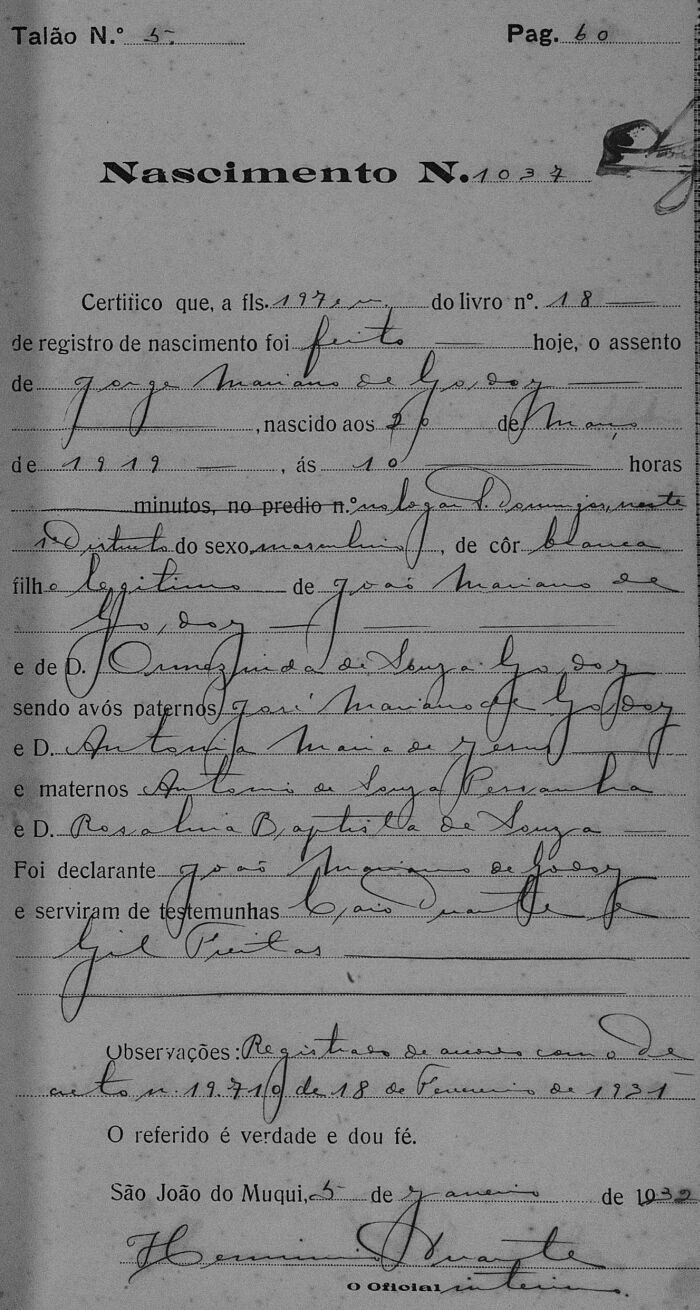 Talão N.º 5 Pag. 60
Nascimento N. 1037
Certifico que, a fls. 197 v. do livro nº. 18
de registro de nascimento foi feito hoje, o assento
de Jorge Mariano de Godoy
, nascido aos de Março
de 1919, ás 10 horas
minutos, no predio n.º no logar S. Domingos, neste
1º Districto do sexo masculino, de côr blanca
filho legitimo de João Mariano de
Godoy
e de D. Ormezinda de Souza Godoy
sendo avós paternos José Mariano de Godoy
e D. Antonia Maria de Jesus
e maternos Antonio de Souza Pessanha
e D. Rosalina Baptista de Souza
Foi declarante João Mariano de Godoy
e serviram de testemunhas Caio Duarte e
Gil Freitas
Observações: Registrado de accordo com o De-
creto n. 19.710 de 18 de Fevereiro de 1931
O referido é verdade e dou fé.
São João do Muqui, 5 de Janeiro de 1932
Herminio Duarte
O Oficial interino.